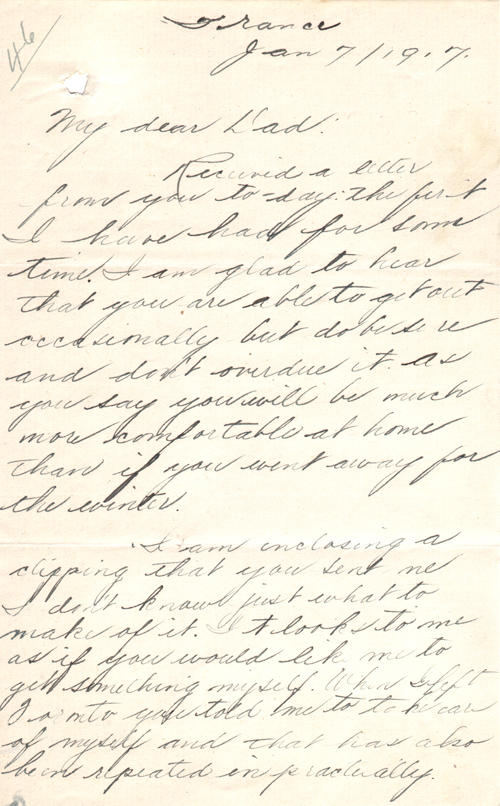 46
France
Jan 7/19.7.
My dear Dad:
Received a letter
from you to-day: the first
I have had for some
time. I am glad to hear
that you are able to get out
occasionally but do be sure
and don't overdue it. as
you say you will be much
more comfortable at home
than if you went away for
the winter.
I am inclosing a
clipping that you sent me
I don't know just what to
make of it. It looks to me
as if you would like me to
get something myself. When I left
Toronto you told me to take care
of myself and that has also
been repeated in practually.